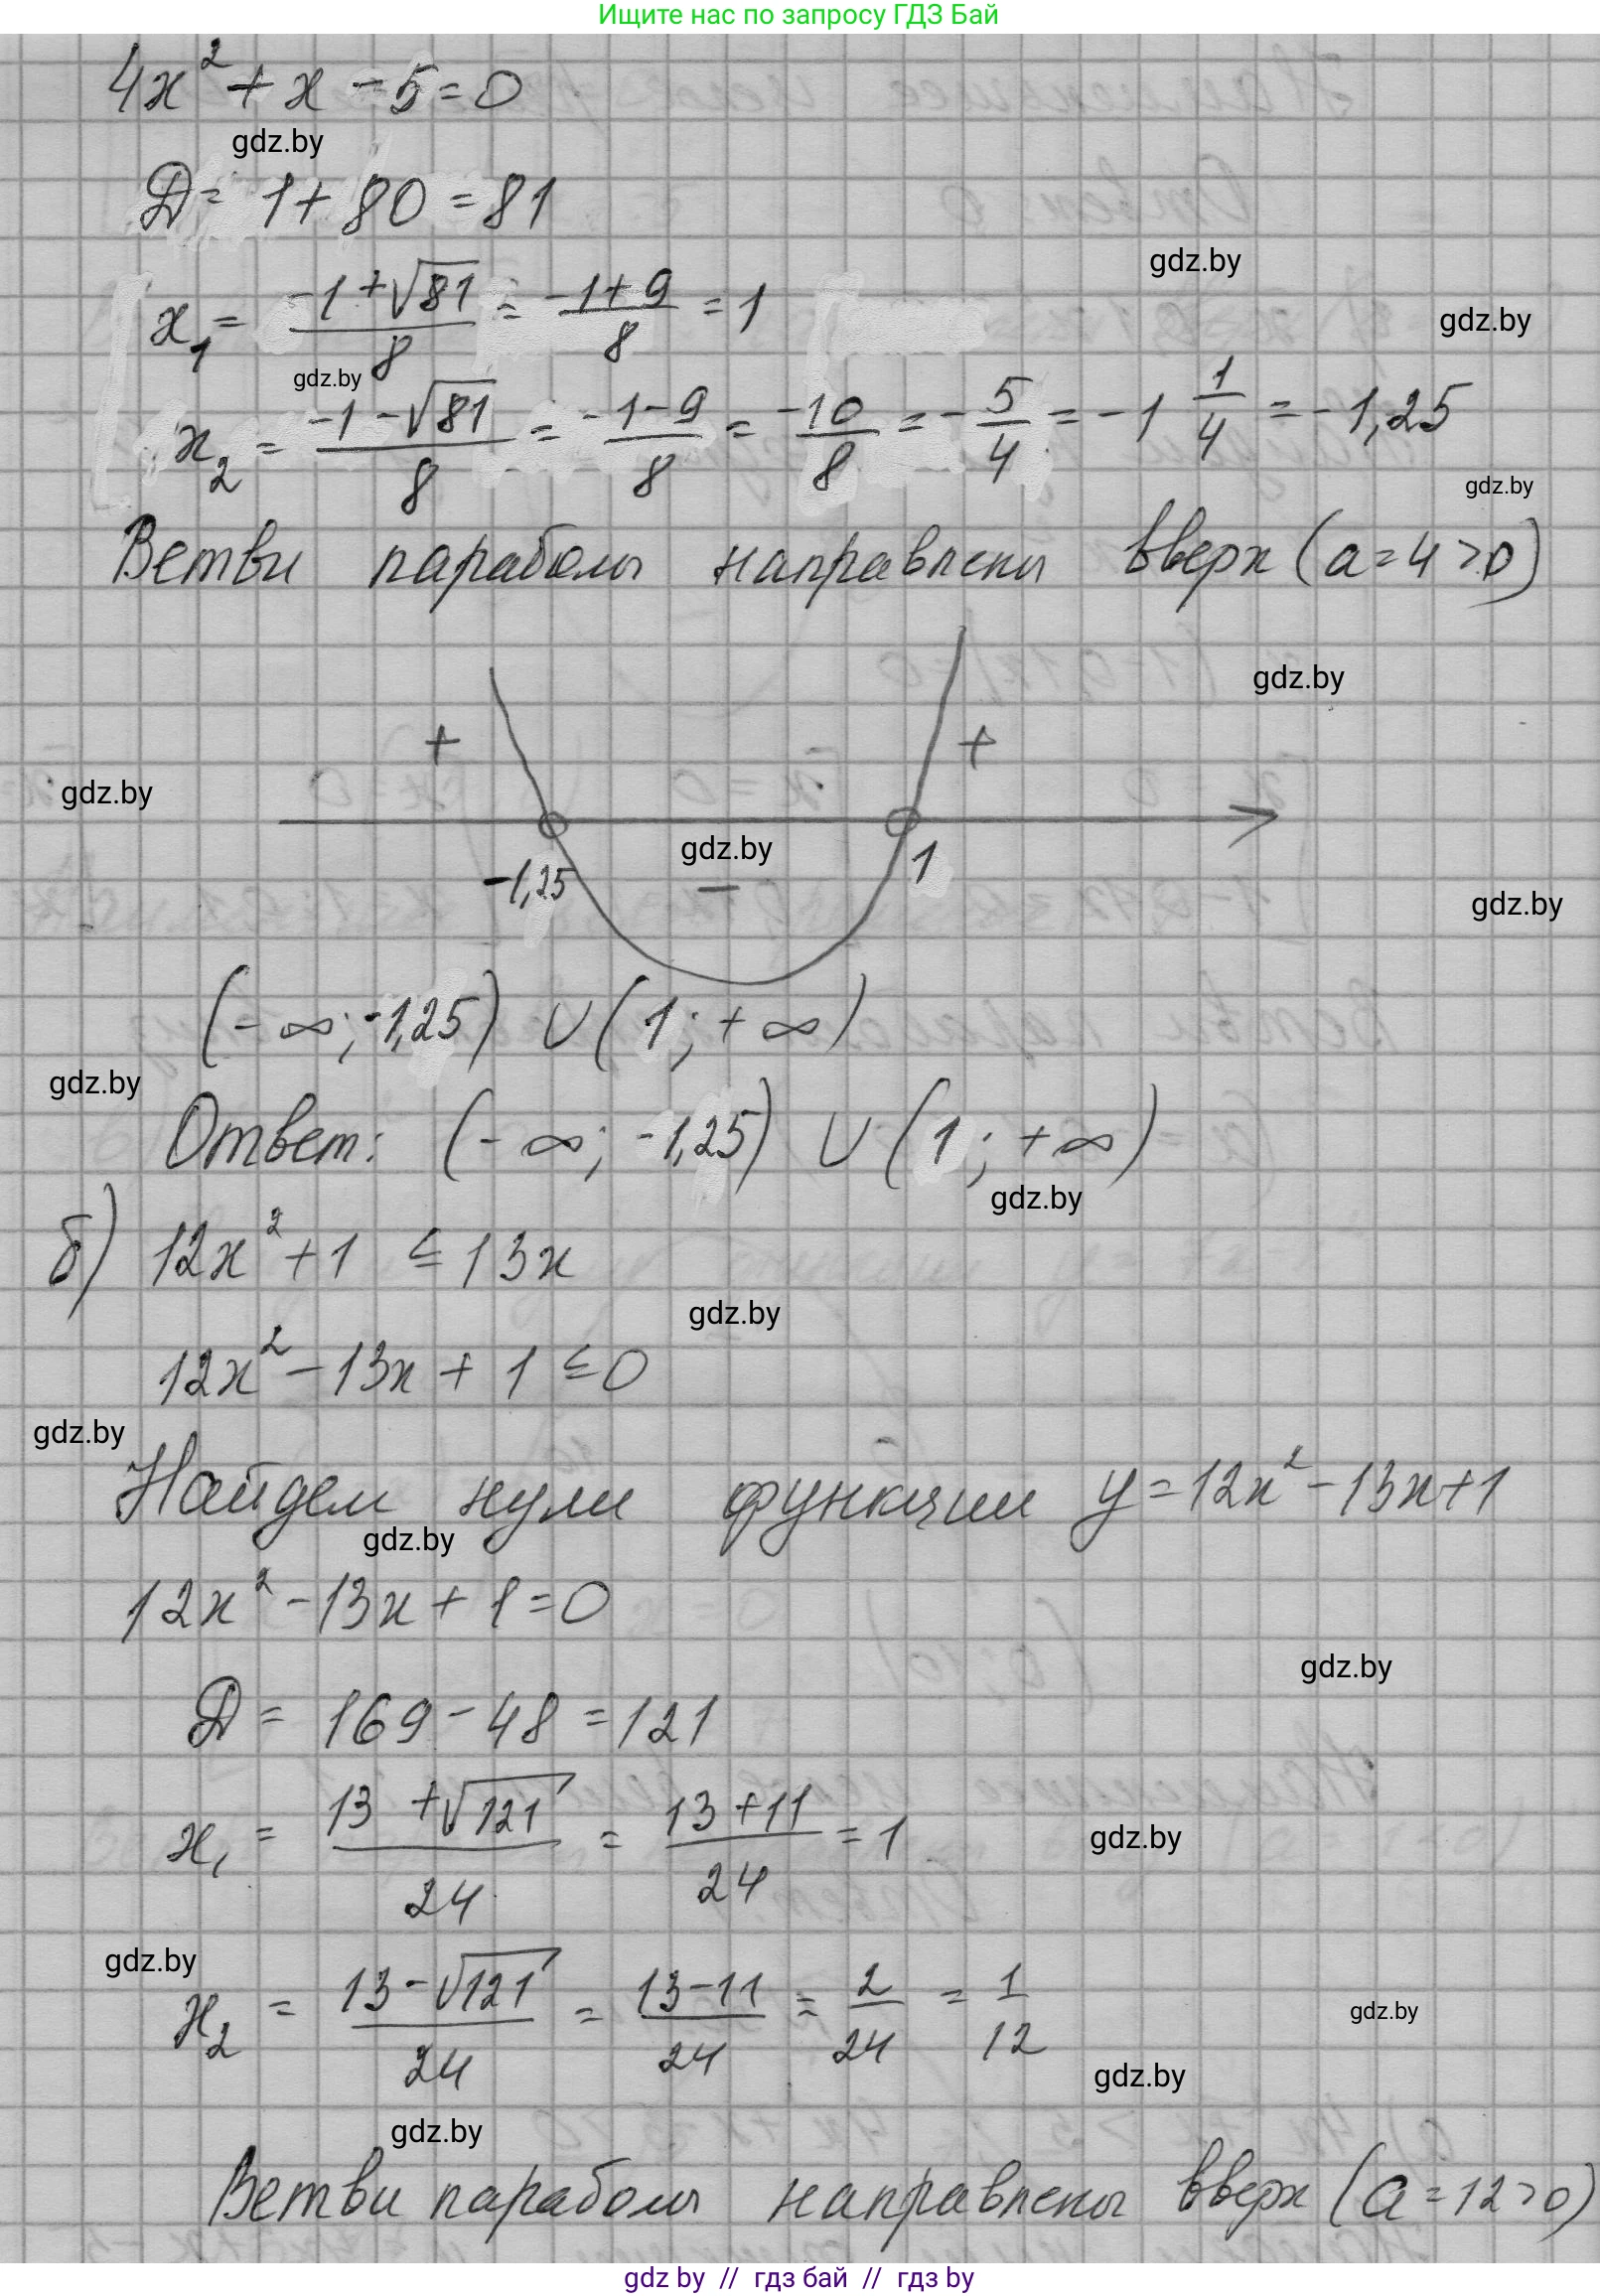 Ищите нас по запросу ГДЗ Бай
4x² + x - 5 = 0
gdz.by
D = 1 + 80 = 81
gdz.by
x₁ = (-1 + √81)/8 = (-1 + 9)/8 = 1
gdz.by
gdz.by
x₂ = (-1 - √81)/8 = (-1 - 9)/8 = -10/8 = -5/4 = -1 1/4 = -1,25
gdz.by
Ветви параболы направлены вверх (a = 4 > 0)
gdz.by
+ +
gdz.by
gdz.by
-1,25 - 1
gdz.by
(-∞; -1,25) ∪ (1; +∞)
gdz.by
Ответ: (-∞; -1,25) ∪ (1; +∞)
gdz.by
б) 12x² + 1 ≤ 13x
gdz.by
12x² - 13x + 1 ≤ 0
gdz.by
Найдем нули функции y = 12x² - 13x + 1
gdz.by
12x² - 13x + 1 = 0
gdz.by
D = 169 - 48 = 121
x₁ = (13 + √121)/24 = (13 + 11)/24 = 1
gdz.by
gdz.by
x₂ = (13 - √121)/24 = (13 - 11)/24 = 2/24 = 1/12
gdz.by
gdz.by
gdz.by
Ветви параболы направлены вверх (a = 12 > 0)
gdz by // гдз бай // гдз by